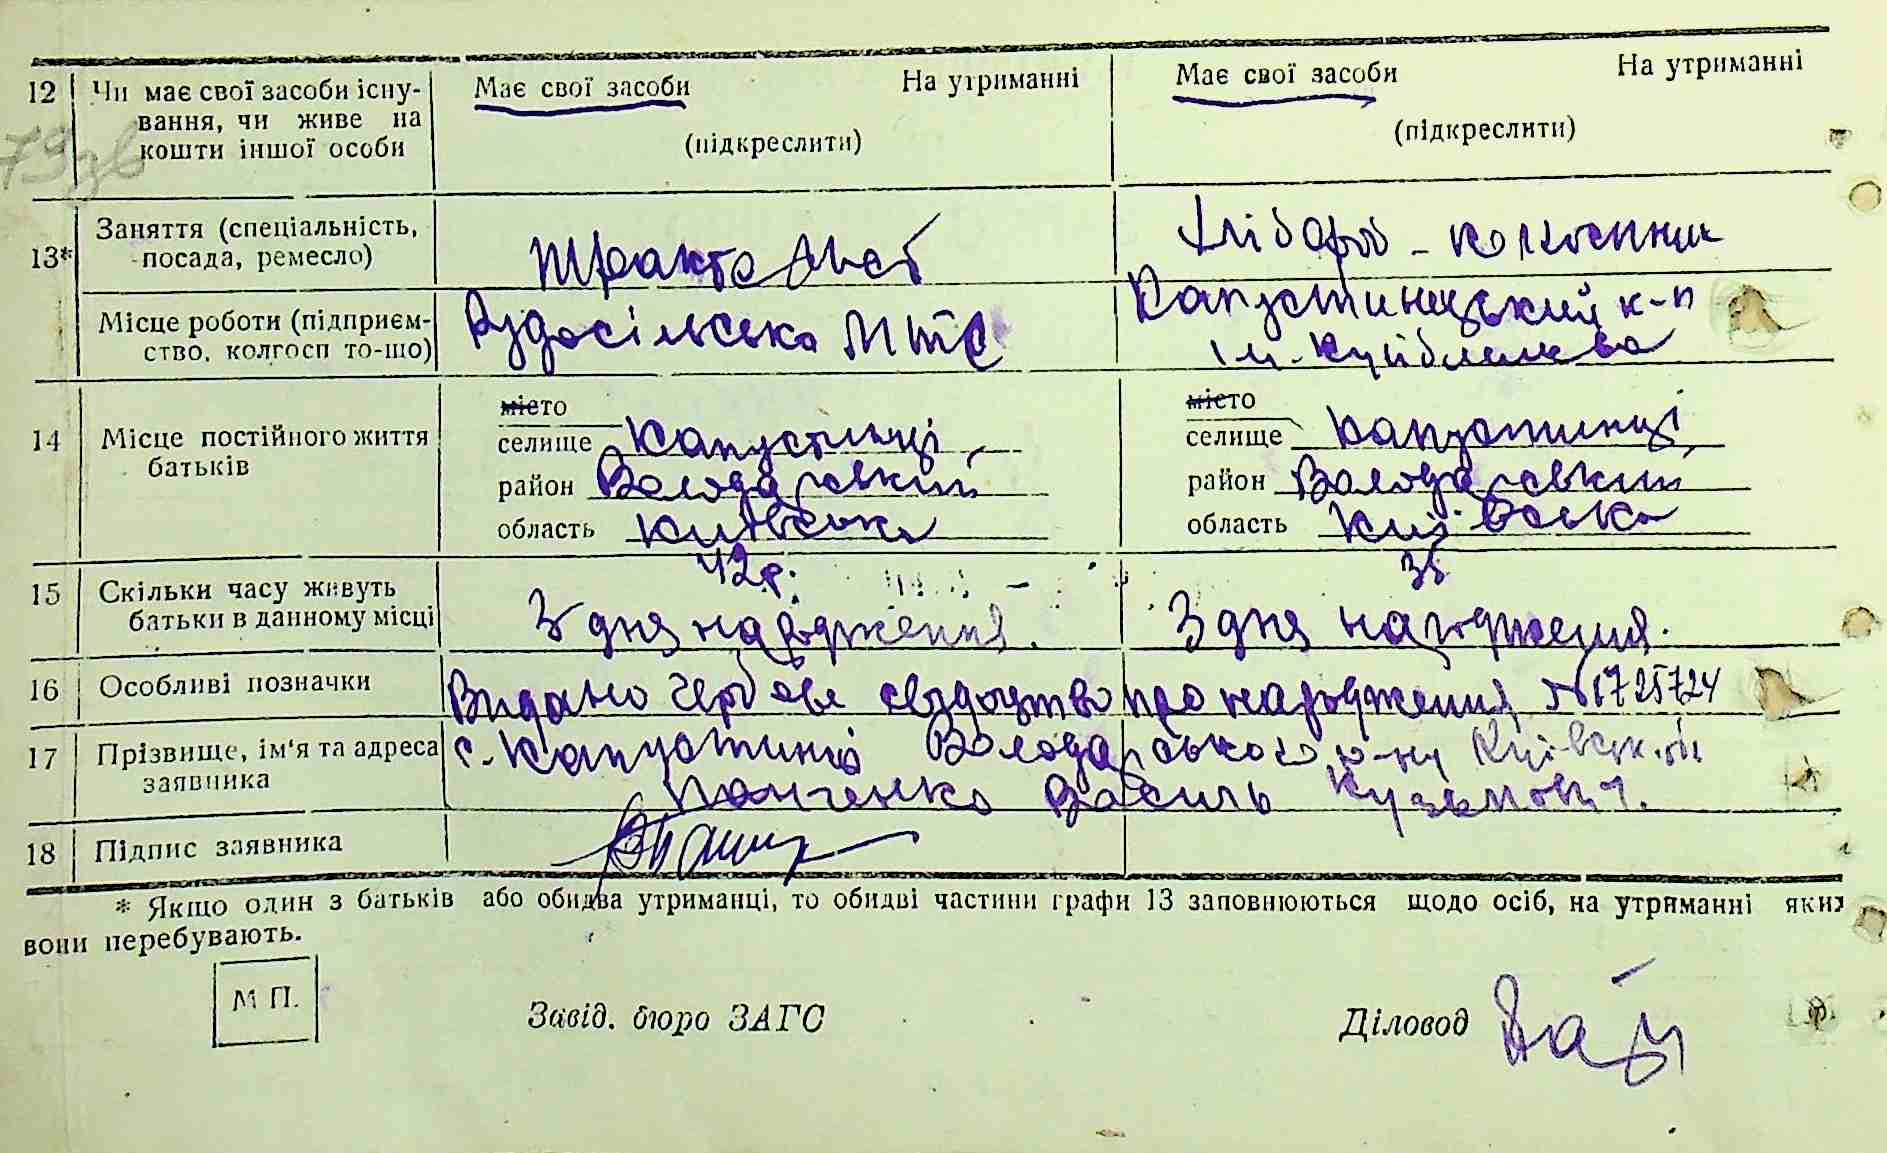 12 Чи має свої засоби існу- Має свої засоби На утриманні Має свої засоби На утриманні
вання, чи живе на
кошти іншої особи (підкреслити) (підкреслити)
79зв
13* Заняття (спеціальність, Хлібороб - колгоспник
посада, ремесло) Тракторист
Місце роботи (підприєм- Рудосільська МТС Капустинецький к-п
ство, колгосп то-що) ім. Куйбишева
місто місто
14 Місце постійного життя селище Капустинці селище Капустинці
батьків район Володарський район Володарський
область Київська область Київська
42р. 35
15 Скільки часу живуть З дня народження. З дня народження.
батьки в данному місці
16 Особливі позначки Видано гербове свідоцтво про народження № 1725724
17 Прізвище, ім'я та адреса с. Капустинці Володарського р-ну Київськ.
заявника Панченко Василь Кузьмович.
18 Підпис заявника
* Якщо один з батьків або обидва утриманці, то обидві частини графи 13 заповнюються щодо осіб, на утриманні яких
вони перебувають.
М П.
Завід. бюро ЗАГС Діловод